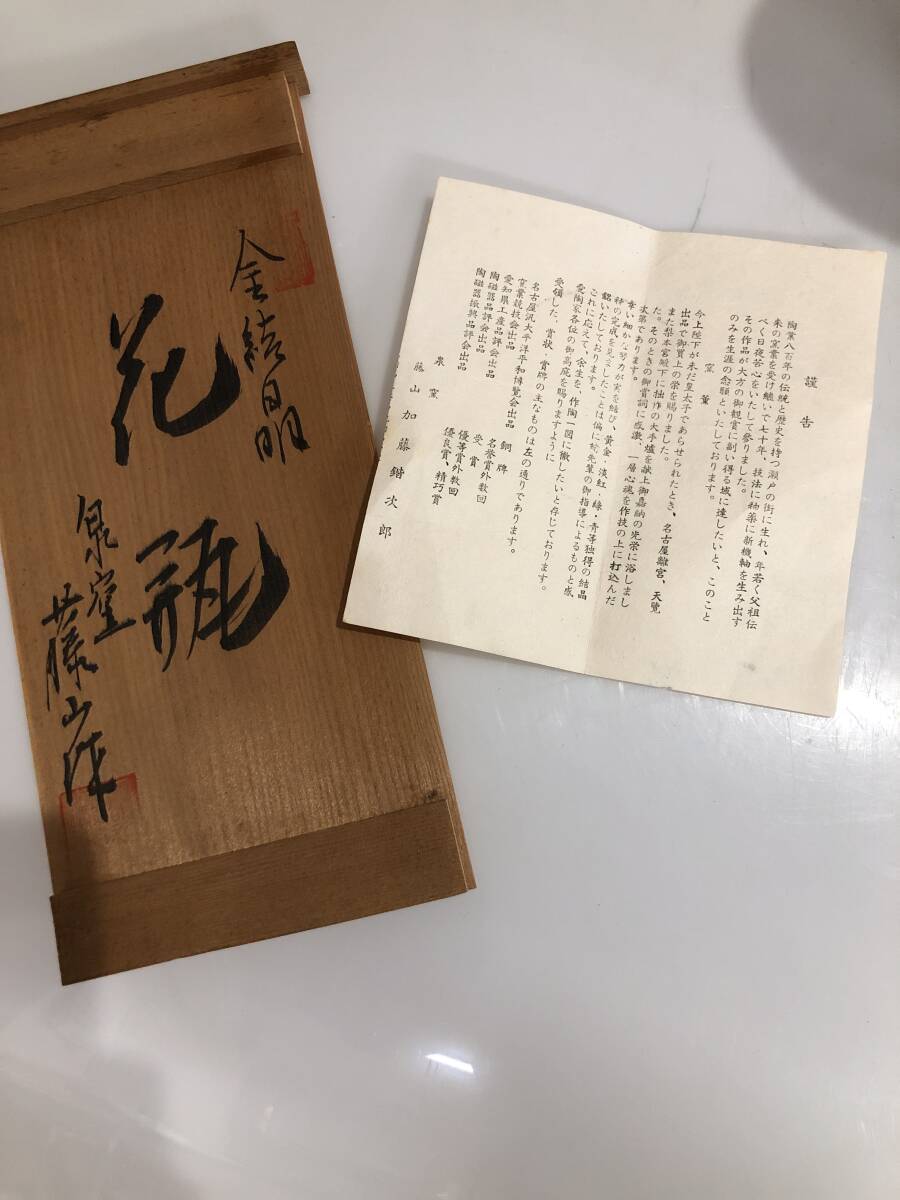 金結晶
花瓶
泉窯
藤山作
謹告
陶業八百年の伝統と歴史を持つ瀬戸の街に生れ、年若く父祖伝
来の窯業を受け継いで七十年、技法に釉薬に新機軸を生み出す
べく日夜苦心をいたして参りました。
その作品が大方の御観賞に副い得る域に達したいと、このこと
のみを生涯の念願といたしております。
窯業
今上陛下が未だ皇太子であらせられたとき、名古屋離宮、天覽
出品で御買上の栄を賜りました。
また梨本宮殿下に拙作の大手爐を献上御嘉納の光栄に浴しまし
た。そのときの御賞詞に感激、一層心魂を作技の上に打込んだ
次第であります。
幸い細かな努力が実を結び、黄金・淡紅・緑・青等独得の結晶
釉の完成を見ましたことは偏に
先輩の御指導によるものと感
銘いたしております。
これに応えて、余生を、作陶一図に徹したいと存じております。
愛陶家各位の御高庇を賜りますように
受領した、賞状・賞牌の主なものは左の通りであります。
名古屋汎太平洋平和博覧会出品 銅牌
窯業競技会出品 名誉賞外数回
愛知県工産品評会出品 受賞
陶磁器品評会出品 優等賞外数回
陶磁器振興品評会出品 優良賞、精巧賞
泉窯
藤山 加藤鍇次郎